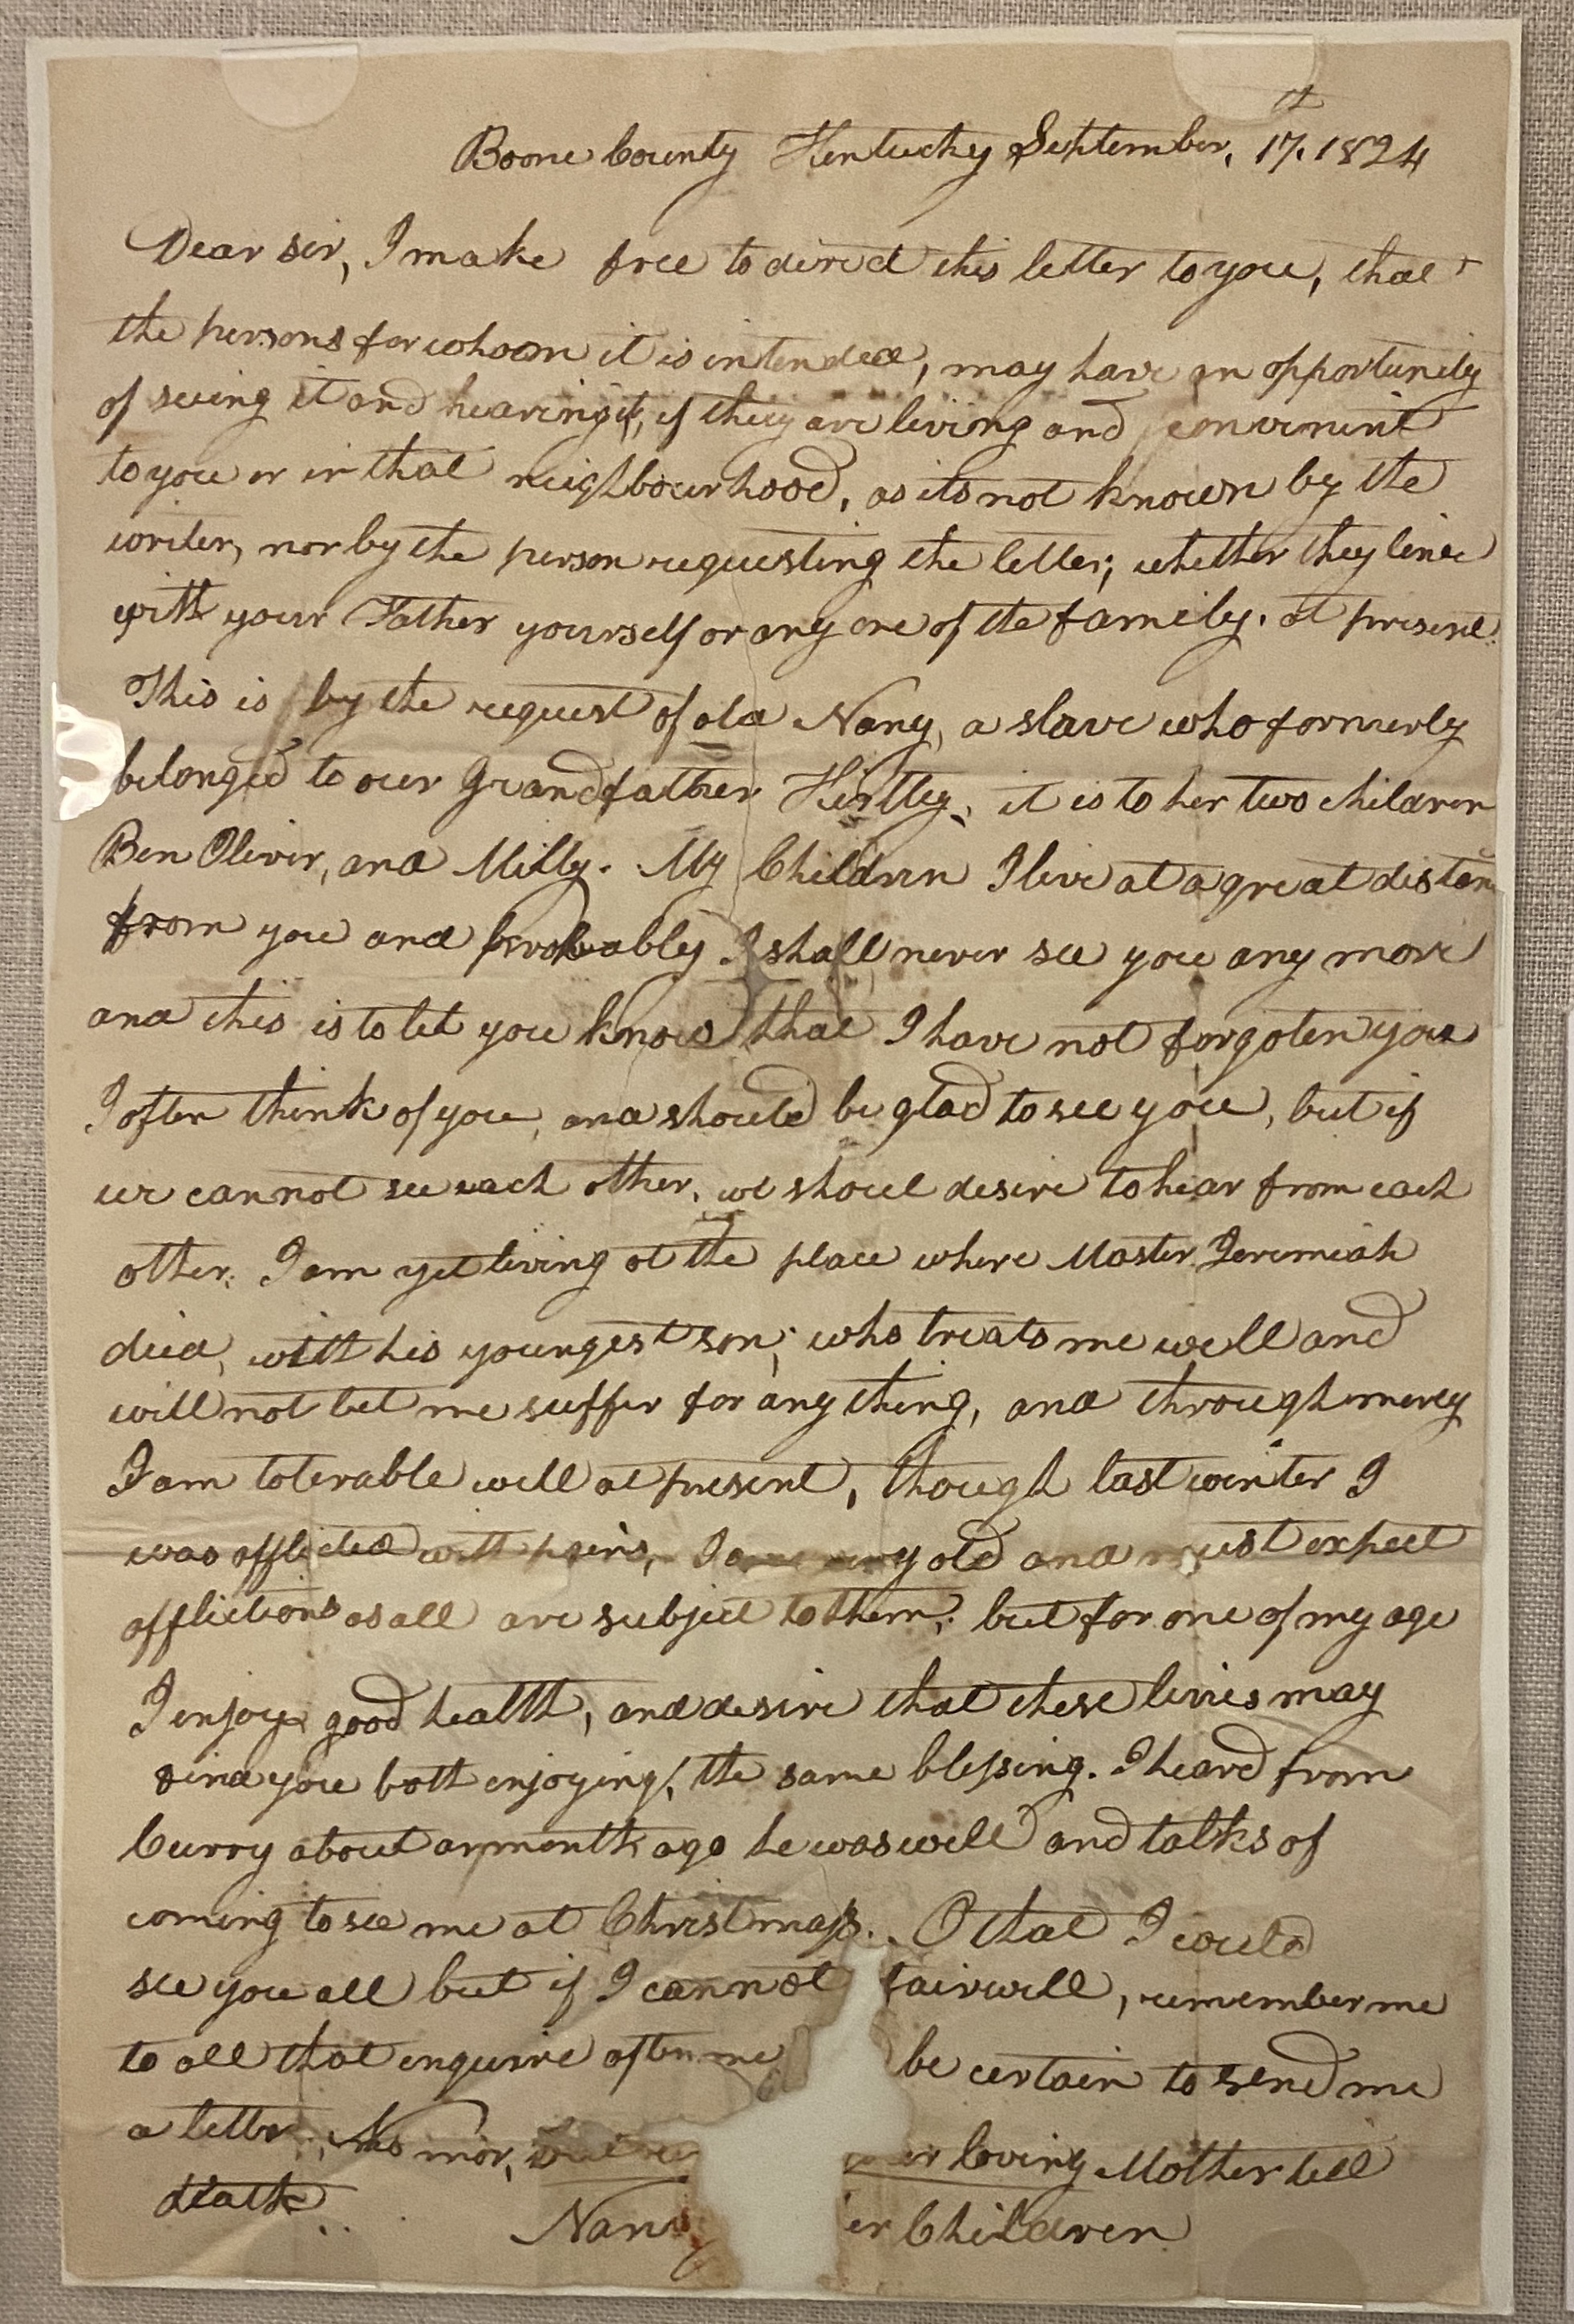 Boone County Kentucky September, 17th. 1824
Dear sir, I make free to direct this letter to you, that
the persons for whom it is intended, may have an opportunity
of seeing it and hearing it, if they are living and convenient
to you or in that neighbourhood, as its not known by the
writer, nor by the person requesting the letter; whether they live
with your Father yourself or any one of the family. at present.
This is by the request of old Nany, a slave who formerly
belonged to our Grandfather Kirtley, it is to her two children
Ben Oliver, and Milly. My Children I live at a great distan
from you and probably I shall never see you any more
and this is to let you know that I have not forgoten you
I often think of you, and should be glad to see you, but if
we cannot see each other, we shoul desire to hear from each
other. I am yet living at the place where Master Jeremiah
died, with his youngest son; who treats me well and
will not let me suffer for any thing, and through mercy
I am tolerable well at present, though last winter I
was afflicted with pains, I am very old and must expect
afflictions as all are subject to them; but for one of my age
I enjoy good health, and desire that these lines may
find you both enjoying, the same blessing. I heard from
Curry about a month ago he was well and talks of
coming to see me at Christmass. O that I could
see you all but if I cannot fairwell, remember me
to all that enquire after me be certain to send me
a letter, No mor, loving Mother till
death
Nany er Children